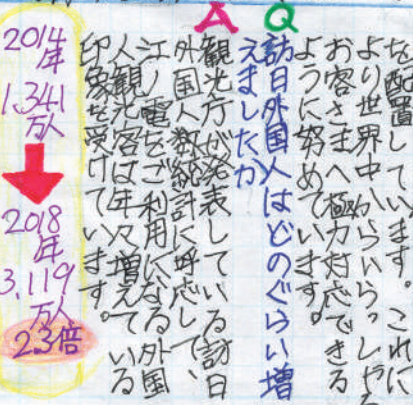 を配置しています。これに
より世界中からいらっしゃる
お客さまへ極力対応できる
ように努めています。
Q
訪日外国人はどのぐらい増
えましたか
A
観光庁が発表している訪日
外国人数統計に呼応して、
江ノ電をご利用になる外国
人観光客は年々増えている
印象を受けています。
2014
年
1,341
万人
2018
年
3,119
万人
2.3倍